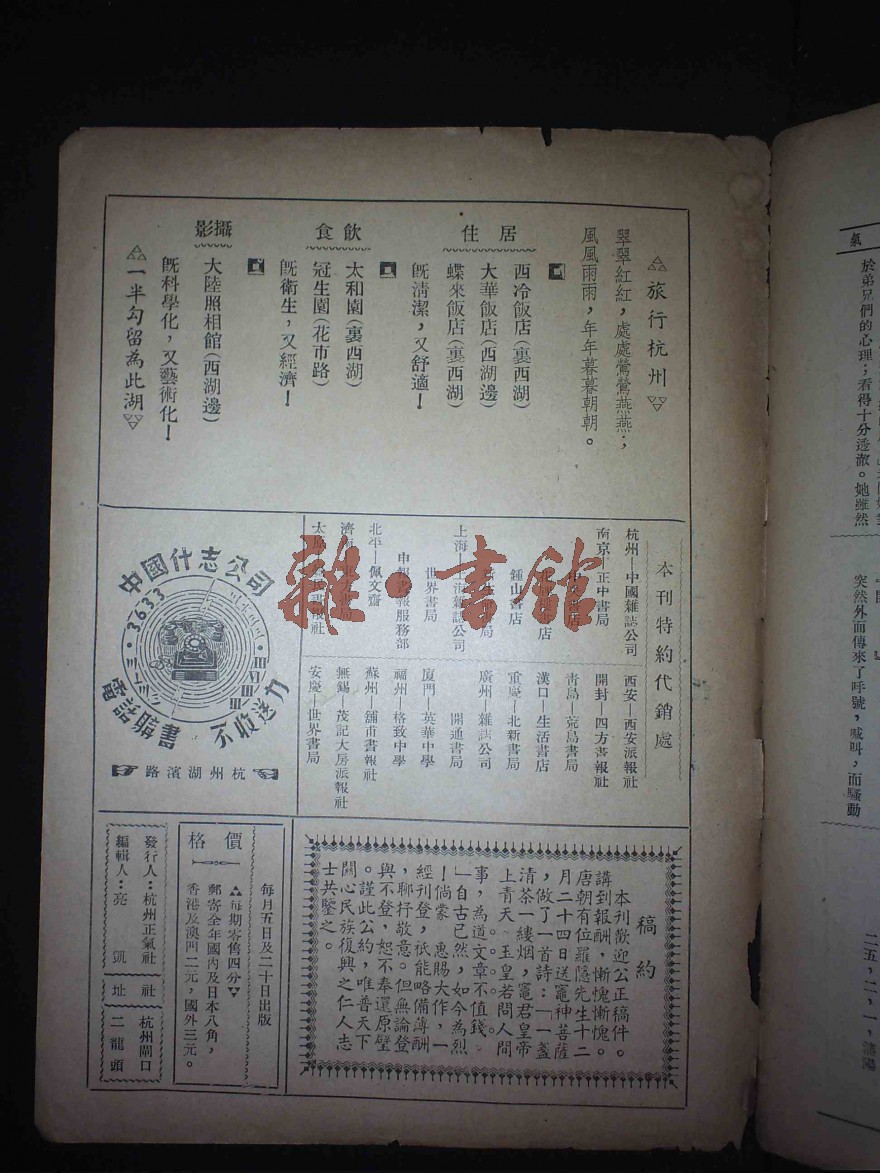 旅行杭州
翠翠紅紅，處處鶯鶯燕燕；
風風雨雨，年年暮暮朝朝。
居住
西冷飯店（裏西湖）
大華飯店（西湖邊）
蝶來飯店（裏西湖）
既清潔，又舒適！
飲食
太和園（裏西湖）
冠生園（花市路）
既衛生，又經濟！
攝影
大陸照相館（西湖邊）
既科學化，又藝術化！
一半勾留為此湖
本刊特約代銷處
杭州—中國雜誌公司
南京—正中書局
書店
店
鍾山書店
書局
上海—上海雜誌公司
世界書局
申報書報服務部
北平—佩文齋
濟南
太原
書報社
西安—西安派報社
開封—四方書報社
青島—荒島書局
漢口—生活書店
重慶—北新書局
廣州—雜誌公司
開通書局
廈門—英華中學
福州—格致中學
蘇州—舖甫書報社
無錫—茂記大房派報社
安慶—世界書局
中國什志公司
3633
電話購書 不收送力
杭州湖濱路
稿約
本刊歡迎公正稿件。
講到報酬，慚愧慚愧。
唐朝有位羅隱先生十二
月二十四日送竈神菩薩
，做了一首詩：「一盞
清茶一縷烟，竈君皇帝
上青天、玉皇若問人間
事，為道文章不值錢。
」自古已然，如今為烈
！倘蒙 惠賜大作，一
經刊登，祇能略備薄酬
，聊抒敬意。但無論登
與不登，恕不奉還原璧
。謹此公約，唯普天下
關心民族復興之仁人志
士共鑒之。
每月五日及二十日出版
價格
每期零售四分
郵寄全年國內及日本八角，
香港及澳門二元，國外三元。
發行人：杭州正氣社
編輯人：亮凱
社址
杭州閘口
二龍頭
雜·書館
氣
於弟兄們的心理；看得十分透澈。她雖然
突然外面傳來了呼號，喊叫，而騷動
二五，二，一，瀋陽